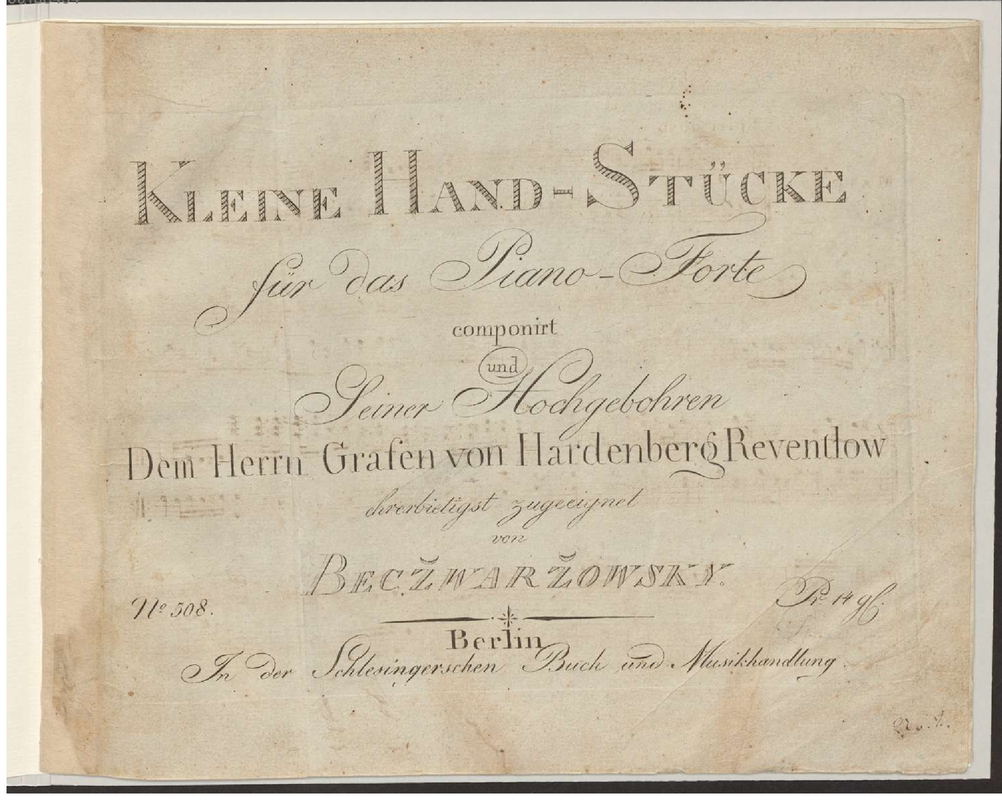 KLEINE HAND-STÜCKE
für das Piano-Forte
componirt
und
Seiner Hochgebohren
Dem Herrn Grafen von Hardenberg Reventlow
ehrerbietigst zugeeignet
von
BECŽWARŽOWSKY.
No 508.
Pr 14 gl.
Berlin
In der Schlesingerschen Buch und Musikhandlung.